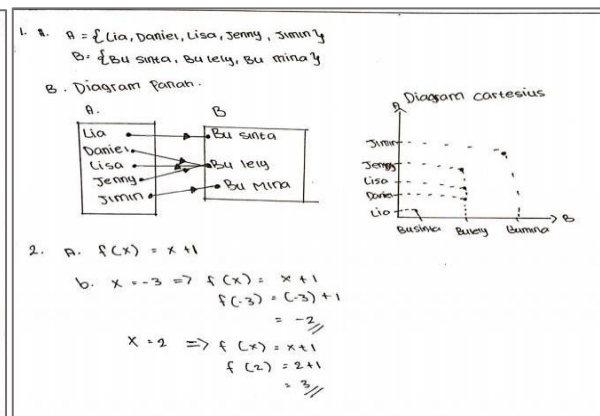 1. A. A = {Lia, Daniel, Lisa, Jenny, Jimin}
B = {Bu sinta, Bu lely, Bu mina}
B. Diagram Panah.
A. B
Lia Bu sinta
Daniel
Lisa Bu lely
Jenny
Jimin Bu Mina
Diagram cartesius
A
Jimin
Jenny
Lisa
Daniel
Lia
B
Businta Bulely Bumina
2. A. f(x) = x+1
b. x = -3 => f(x) = x+1
f(-3) = (-3)+1
= -2//
x = 2 => f(x) = x+1
f(2) = 2+1
= 3//